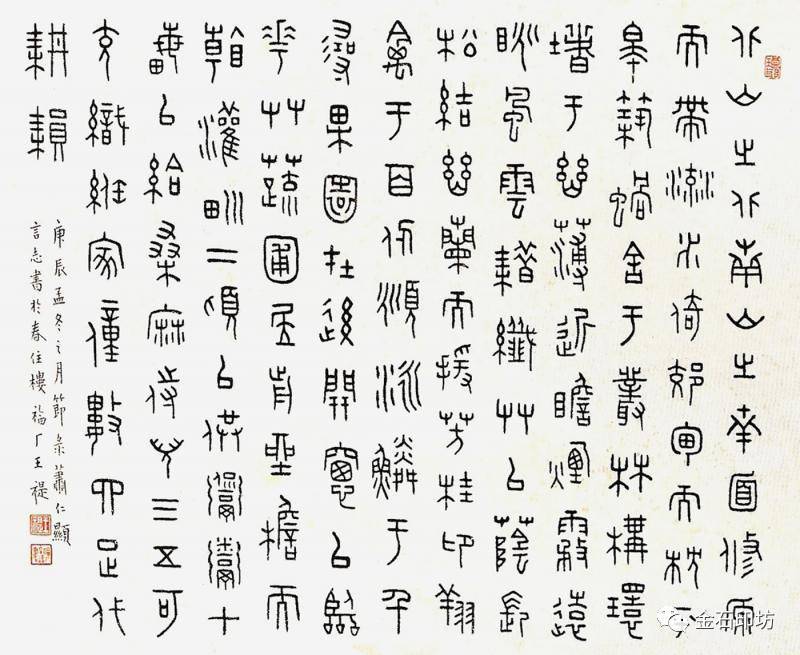 北山之北南山之南面修原
而帶流水倚郊甸而枕平
皋築蝸舍于叢林構環
堵于幽薄近瞻煙霧遠
睇風雲藉纖艸以蔭長
松結幽蘭而援芳桂仰翔
禽于百仞頫泳鱗于千
尋果園在後開窗以臨
花艸蔬圃居前坐檐而
看灌甽二頃以供饘鬻十
畝以給桑麻侍兒三五可
充織紝家僮數四足代
耕耘
庚辰孟冬之月節彔蕭仁顯
言志書於春住樓福厂王禔
金石印坊